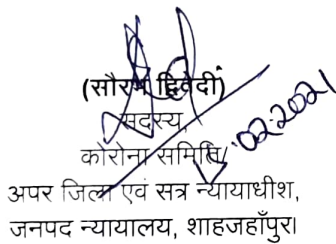 (सौरभ द्विवेदी)
सदस्य,
कोरोना समिति/
अपर जिला एवं सत्र न्यायाधीश,
जनपद न्यायालय, शाहजहाँपुर।
.02.2021